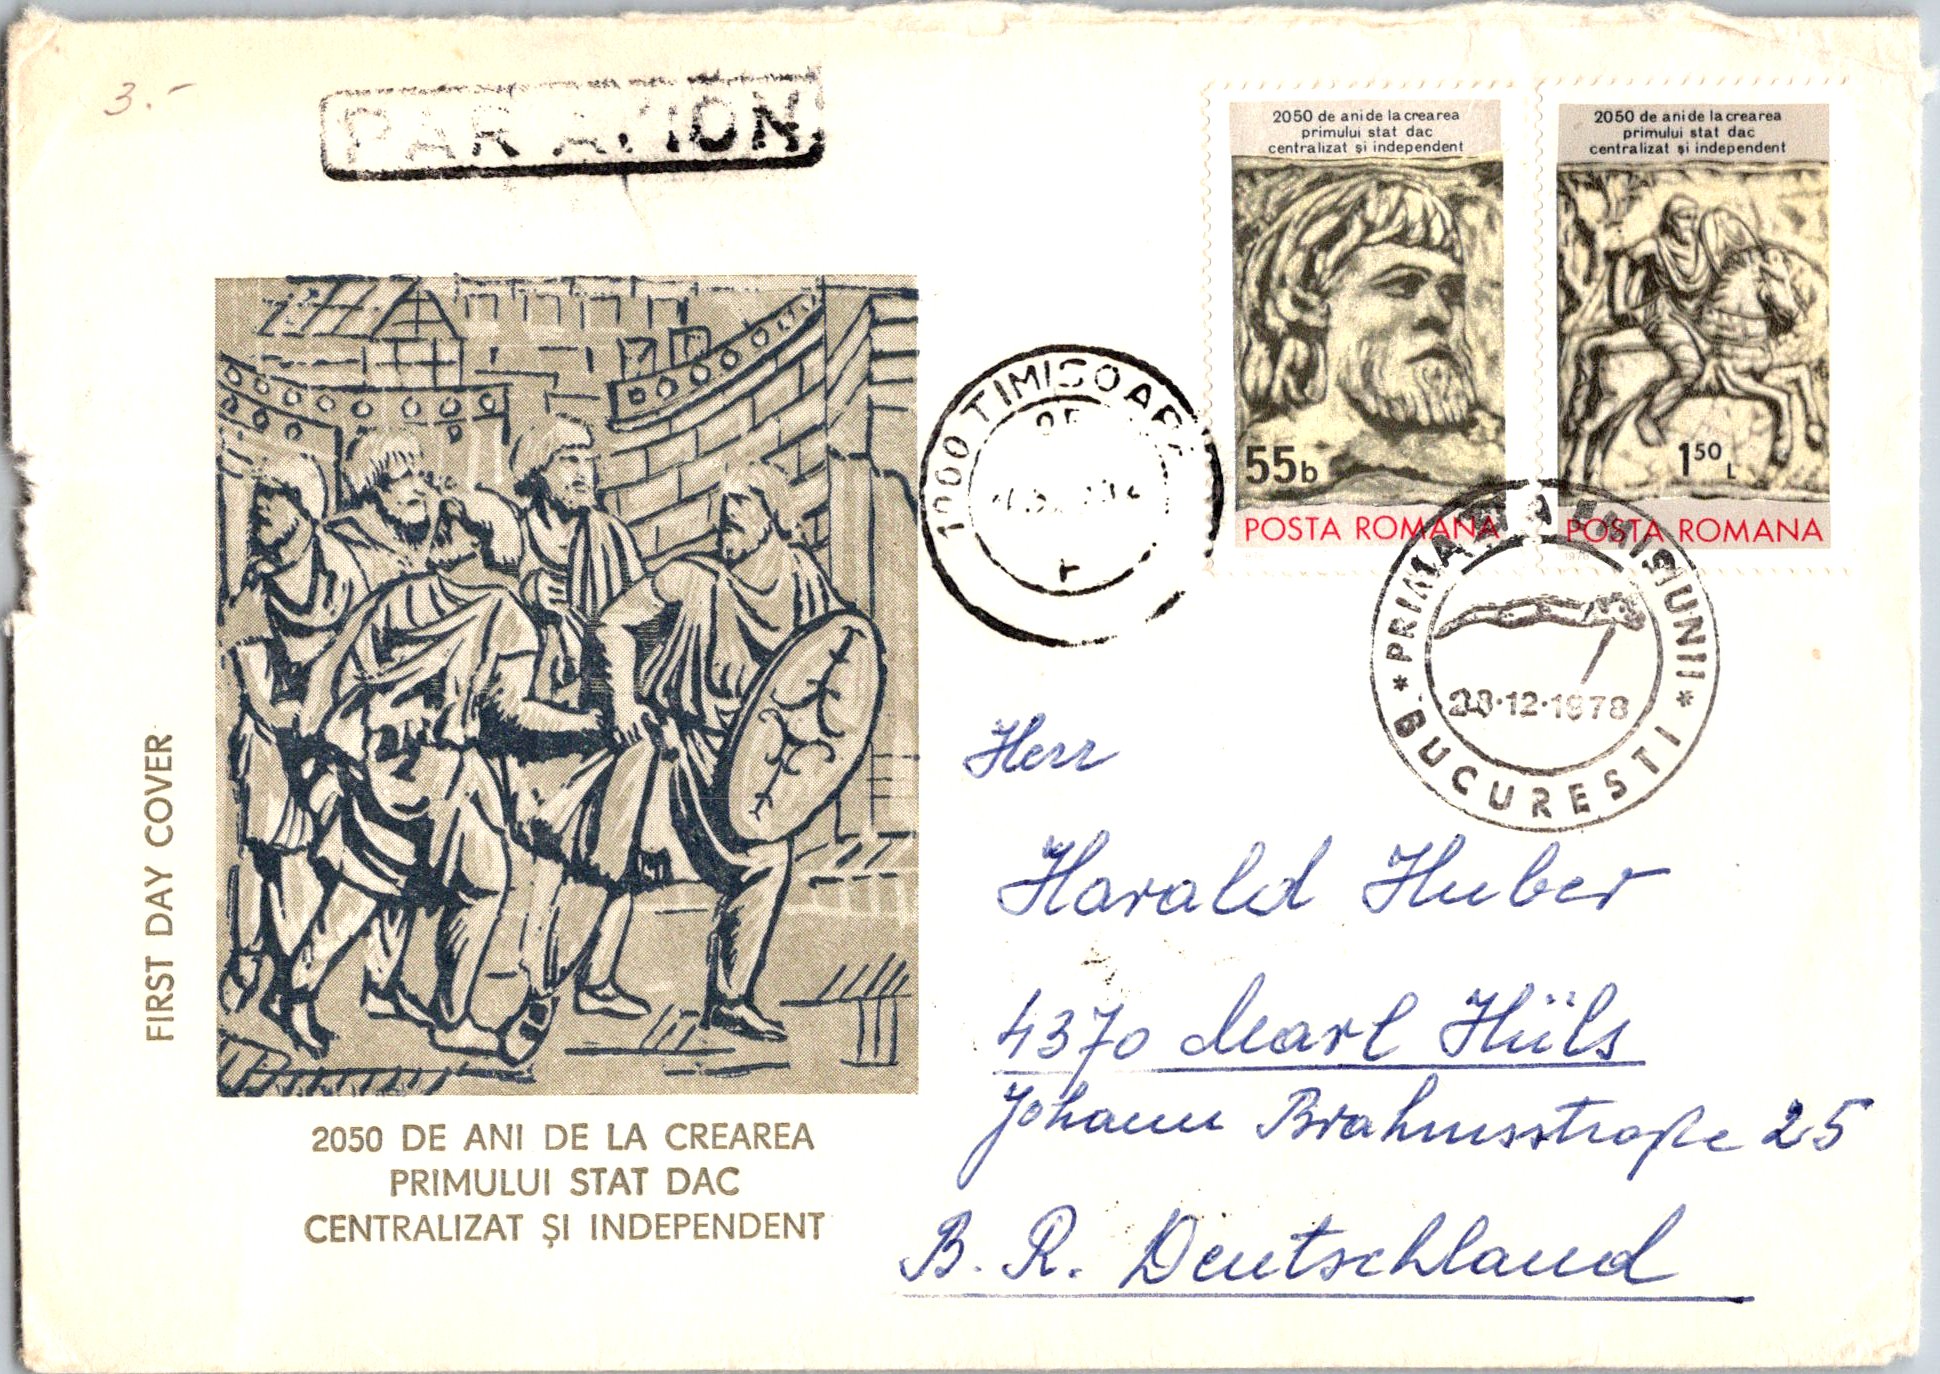 3.-
PAR AVION
2050 de ani de la crearea
primului stat dac
centralizat și independent
55b
POSTA ROMANA
2050 de ani de la crearea
primului stat dac
centralizat și independent
1.50 L
POSTA ROMANA
1900 TIMISOARA
PRIMA ZI A EMISIUNII
28·12·1978
* BUCURESTI *
FIRST DAY COVER
2050 DE ANI DE LA CREAREA
PRIMULUI STAT DAC
CENTRALIZAT ȘI INDEPENDENT
Herr
Harald Huber
4370 Marl Hüls
Johann Brahmsstraße 25
B. R. Deutschland